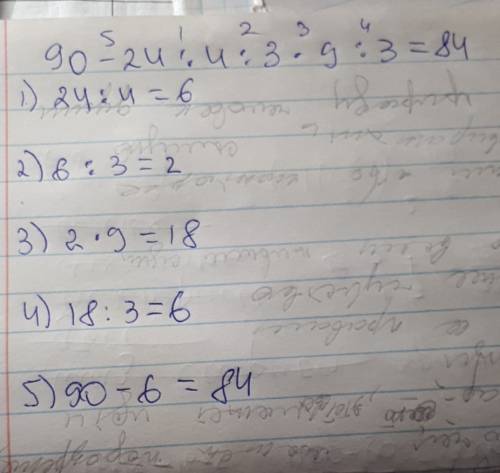 5 1 2 3 4
90 - 24 : 4 : 3 · 9 : 3 = 84
1) 24 : 4 = 6
2) 6 : 3 = 2
3) 2 · 9 = 18
4) 18 : 3 = 6
5) 90 - 6 = 84